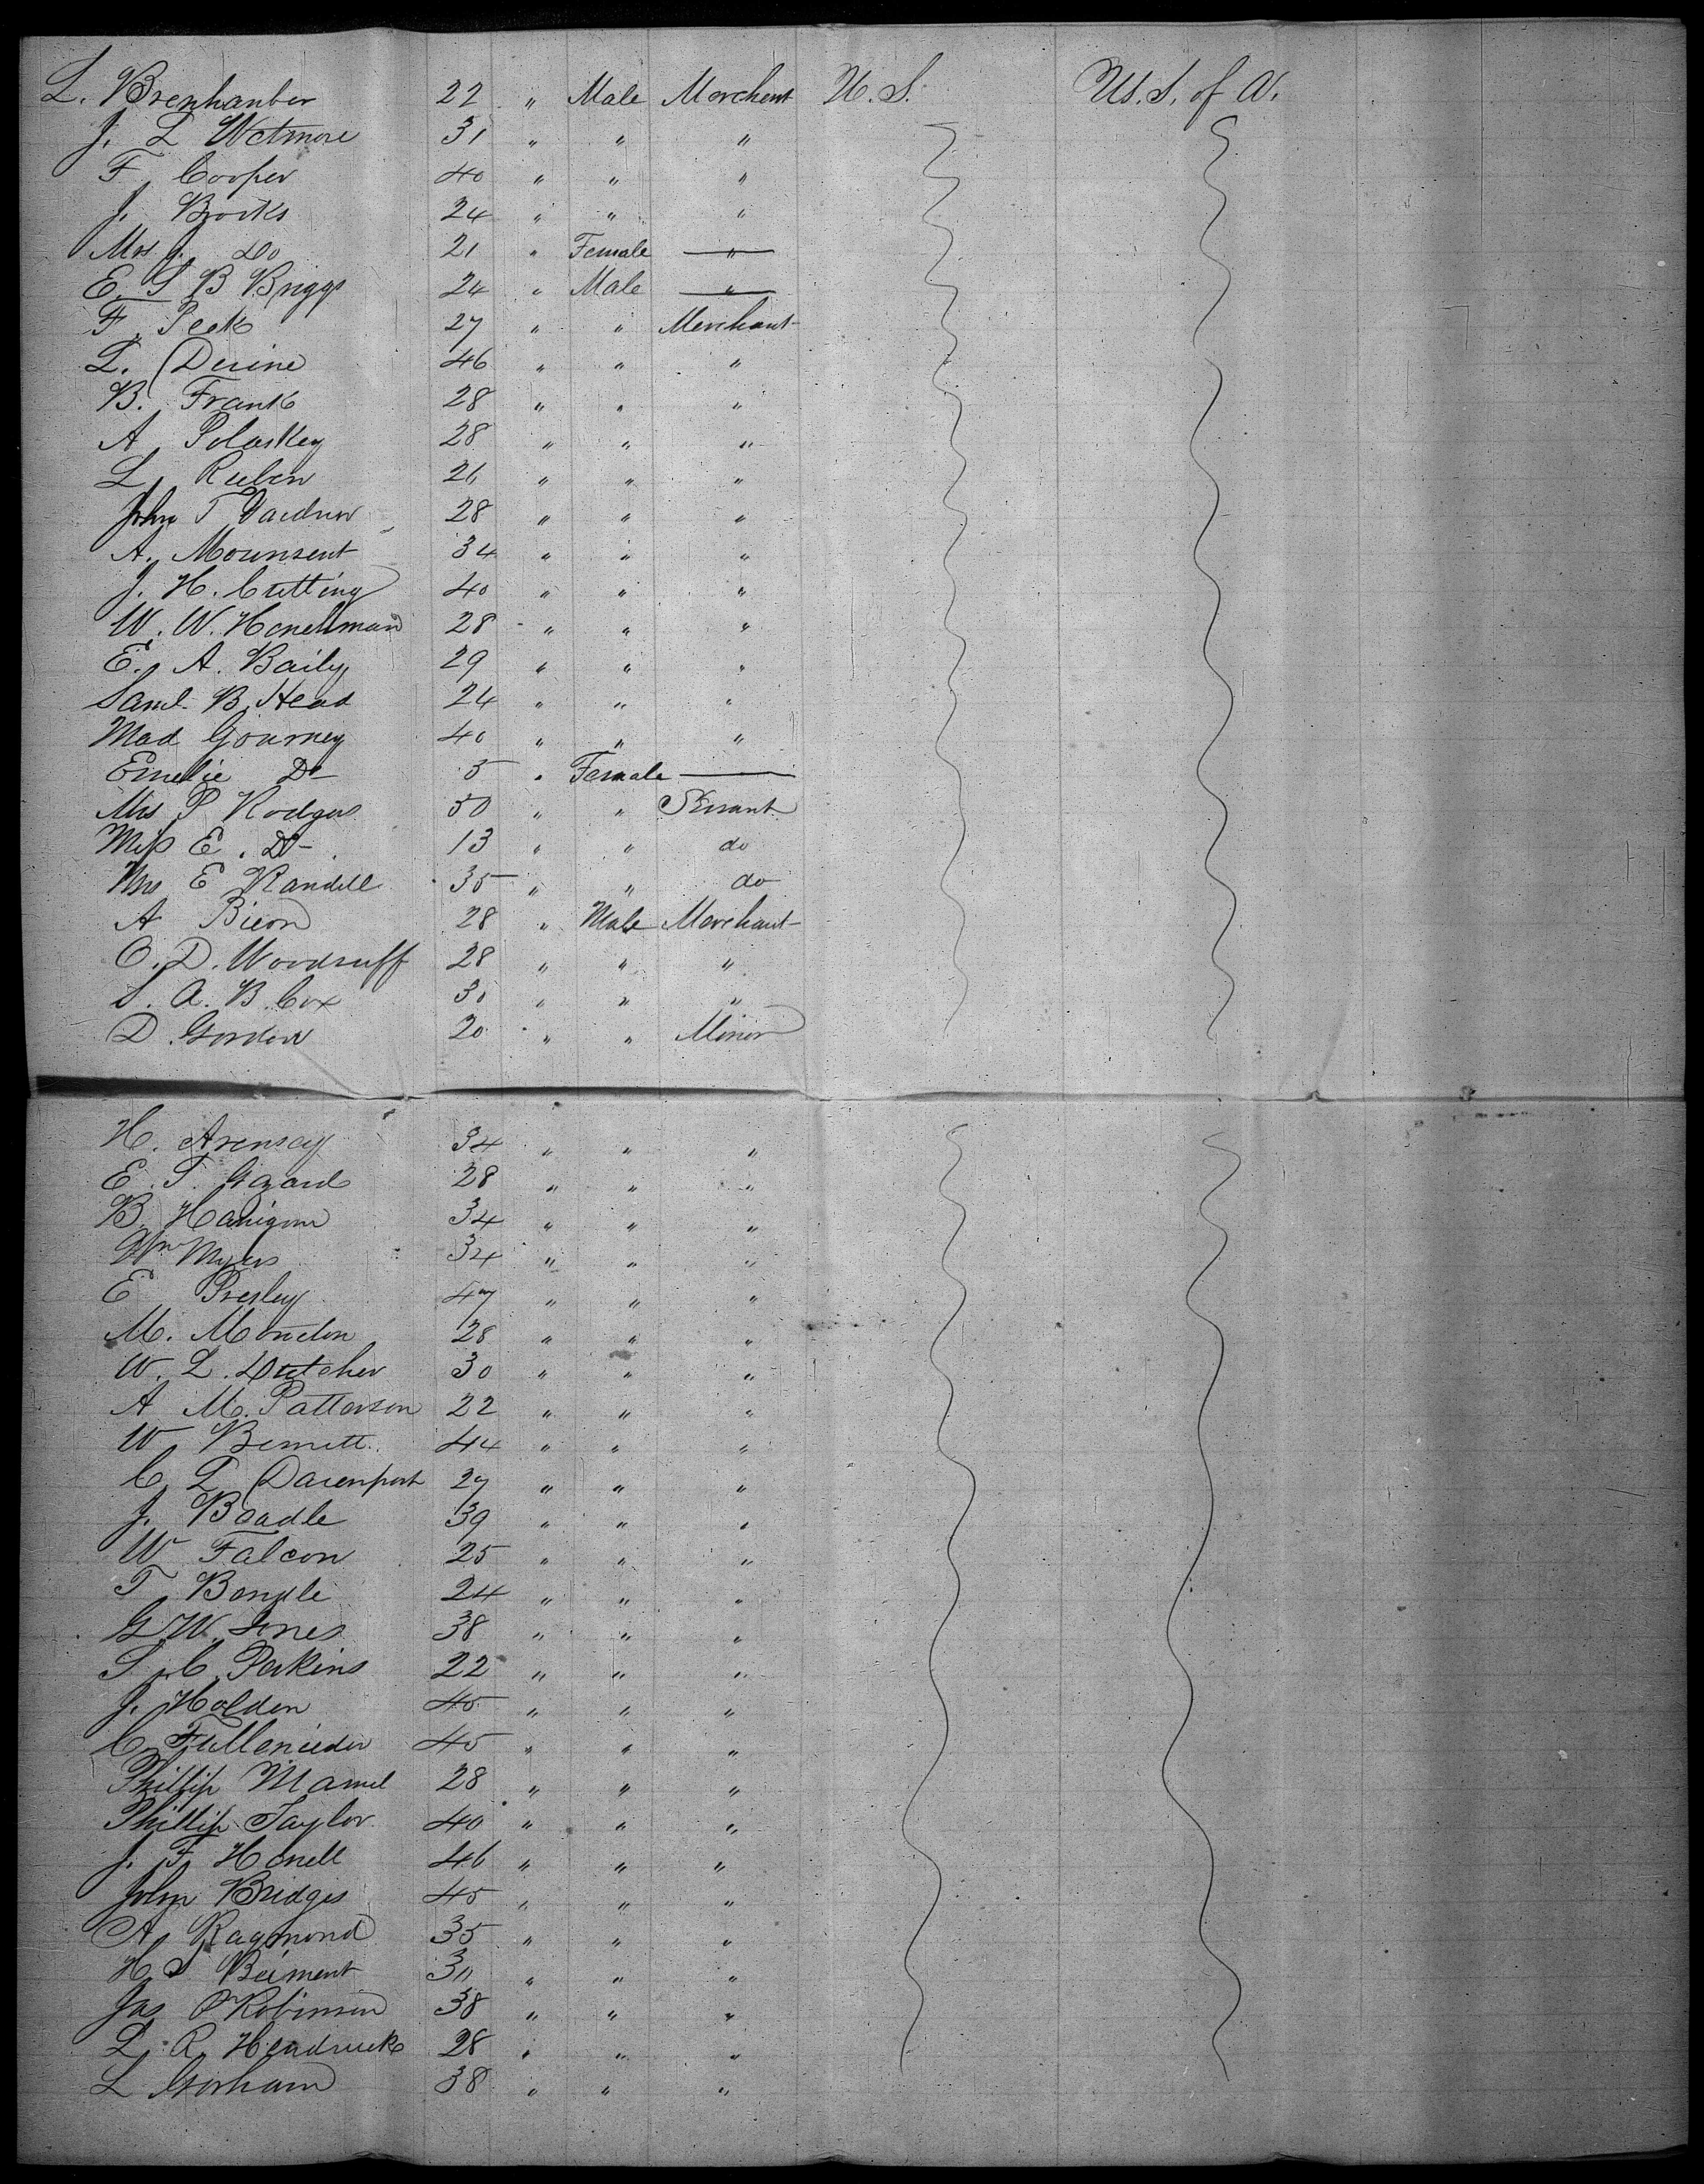 L. Brenhanber 22 " Male Merchent U.S. U.S. of A.
J. L Wetmore 31 " " "
F Cooper 40 " " "
J. Brooks 24 " " "
Mrs J. Do 21 " Female "
E. S B Briggs 24 " Male "
F. Peck 27 " " Merchant
L. Devine 46 " " "
B. Frank 28 " " "
A Polaskey 28 " " "
L Ruben 26 " " "
John T 28 " " "
A. Mounsent 34 " " "
J. H. Cutting 40 " " "
W. W. Henchman 28 " " "
E. A. Baily 29 " " "
Saml. B. Head 24 " " "
Mad Gourney 40 " " "
Emelie Do 5 " Female —
Mrs P Rodgers 50 " " Servant
Miss E. Do 13 " " do
Mrs E Randell 35 " " do
A Bieon 28 " Male Merchant
O. D. Woodruff 28 " " "
S. A. B. Cox 30 " " "
D. Gordon 20 " " Minor
H. Arensey 34 " " "
E. T. Hazard 28 " " "
B. Hanigan 34 " " "
Wm Myers 34 " " "
E Presley 47 " " "
M. Mondon 28 " " "
W. L. Dutcher 30 " " "
A M. Patterson 22 " " "
W Bennett 44 " " "
C. L Davenport 27 " " "
J. Beadle 39 " " "
W Falcon 25 " " "
T Bendle 24 " " "
G. W. Jones 38 " " "
S. C. Perkins 22 " " "
J. Holden 45 " " "
C. Fullenieder 45 " " "
Phillip Mamel 28 " " "
Phillip Taylor 40 " " "
J. F. Honell 46 " " "
John Bridges 45 " " "
A Raymond 35 " " "
H. S Beiment 30 " " "
Jas P Robinson 38 " " "
L. R. Headruck 28 " " "
L Gorham 38 " " "